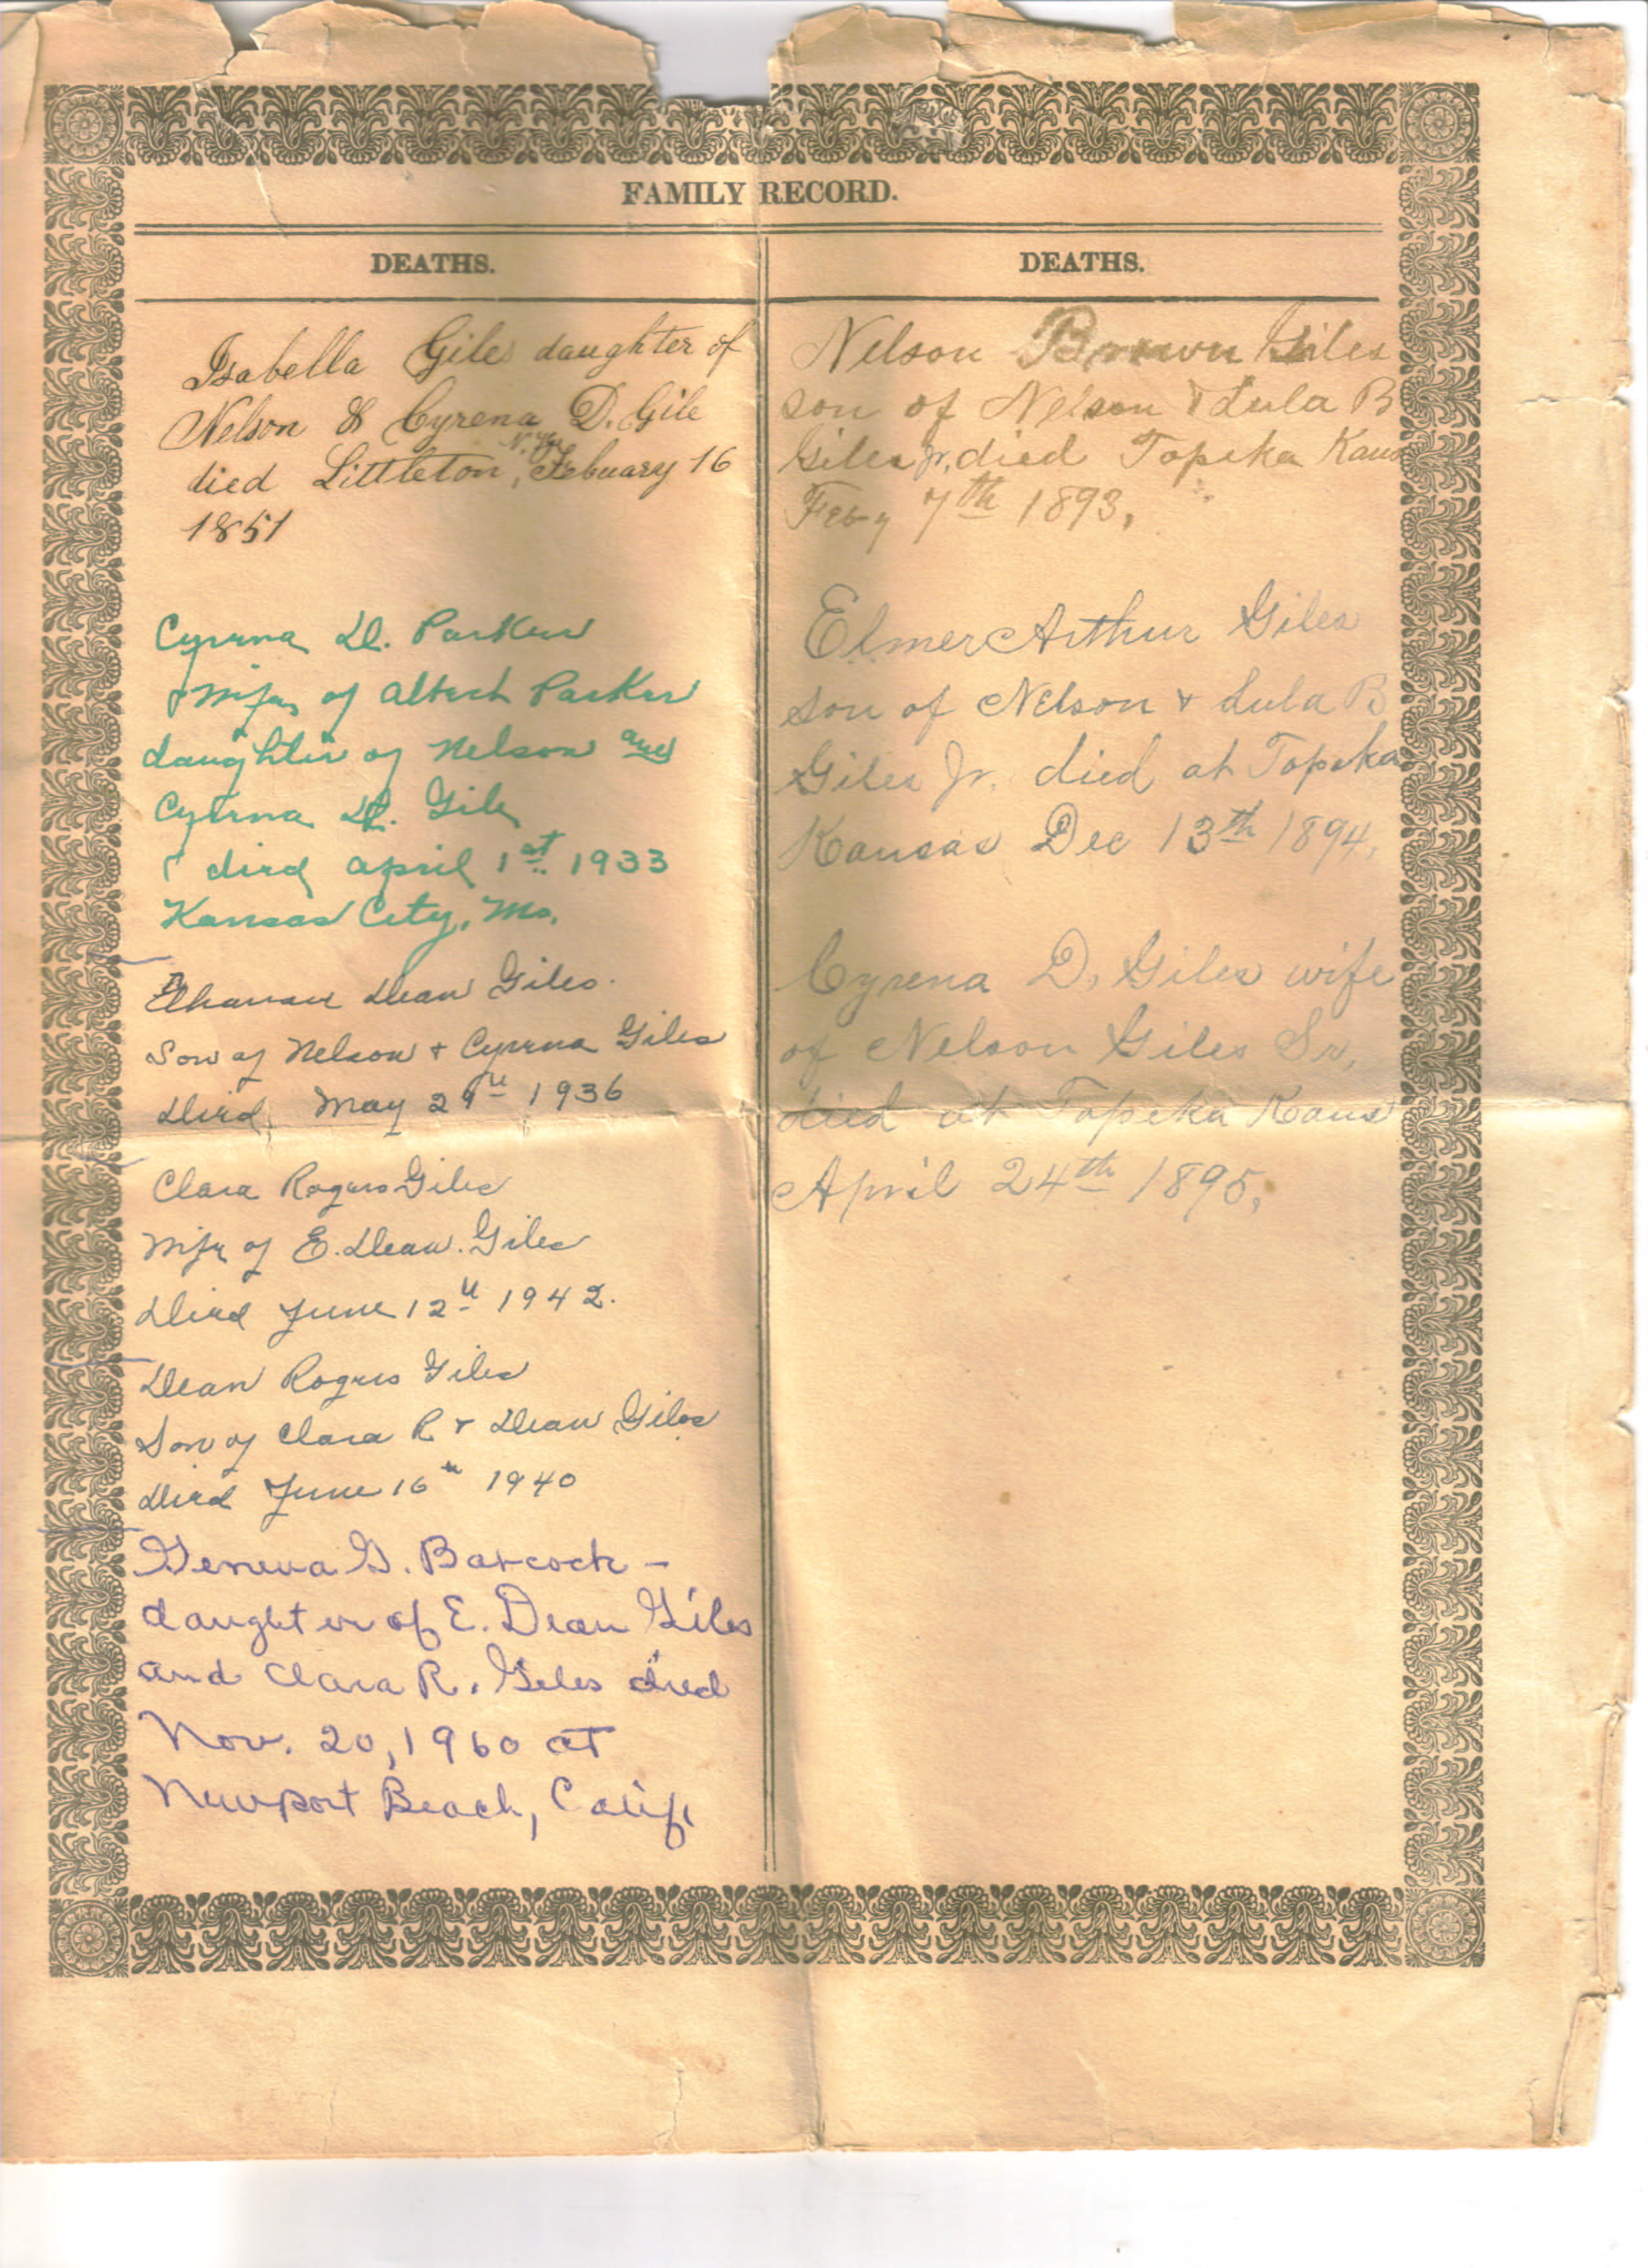 FAMILY RECORD.
DEATHS.
Isabella Giles daughter of
Nelson & Cyrena D. Gile
N. H.
died Littleton, Febuary 16
1851
Cyrena D. Parker
wife of Albert Parker
daughter of Nelson and
Cyrena D. Gile
died April 1st 1933
Kansas City, Mo.
Elhanan Dean Giles.
Son of Nelson + Cyrena Giles
Died May 29th 1936
Clara Rogers Giles
Wife of E. Dean. Giles
Died June 12th 1942.
Dean Rogers Giles
Son of Clara R + Dean Giles
Died June 16th 1940
Geneva G. Babcock –
daughter of E. Dean Giles
and Clara R. Giles died
Nov. 20, 1960 at
Newport Beach, Calif
DEATHS.
Nelson Brown Giles
son of Nelson & Lula B
Giles Jr. died Topeka Kans
Feby 7th 1893,
Elmer Arthur Giles
son of Nelson & Lula B
Giles Jr. died at Topeka
Kansas Dec 13th 1894,
Cyrena D. Giles wife
of Nelson Giles Sr,
died at Topeka Kans
April 24th 1895,